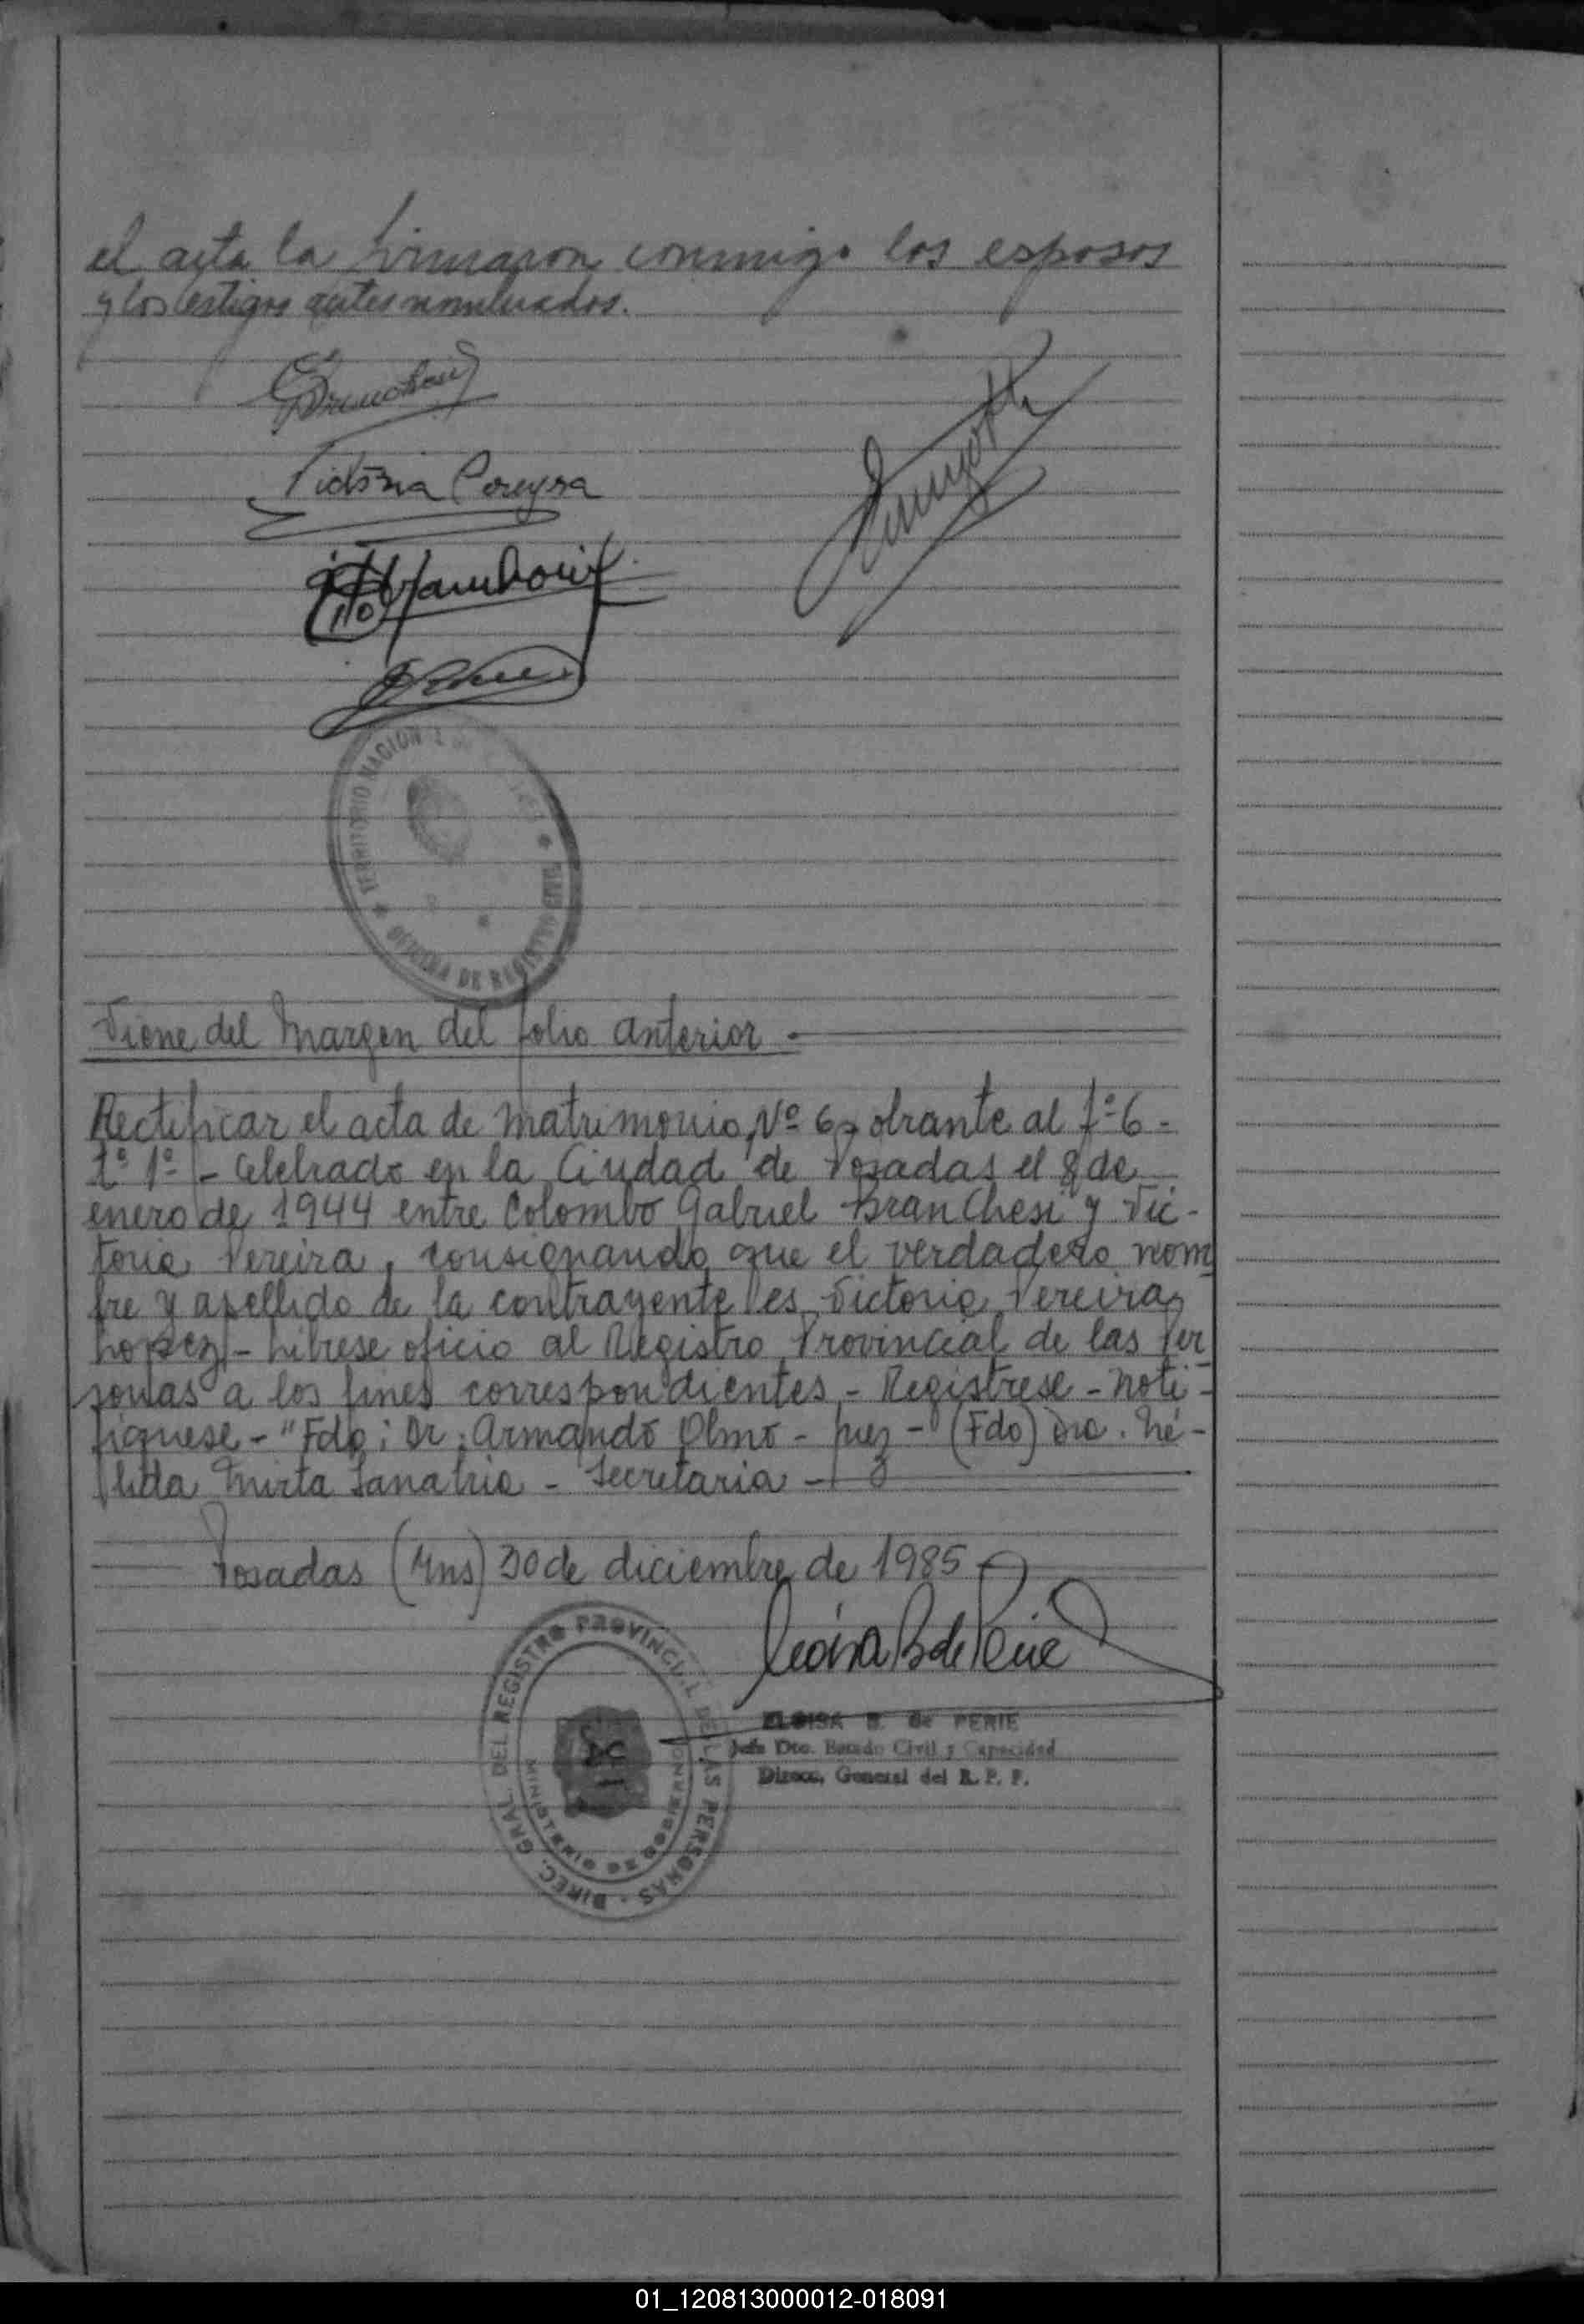 el acta la firmaron conmigo los esposos
y los testigos antes nombrados.
Victoria Pereyra
TERRITORIO NACIONAL
OFICINA DE REGISTRO CIVIL
Viene del Margen del folio anterior -
Rectificar el acta de matrimonio, Nº 6, obrante al fº 6 -
Tº 1º - Celebrado en la Ciudad de Posadas el 8 de
enero de 1944 entre Colombo Gabriel Branchesi y Vic-
toria Pereira, consignando que el verdadero nom
bre y apellido de la contrayente es Victoria Pereira
Lopez - Librese oficio al Registro Provincial de las Per
sonas a los fines correspondientes - Registrese - Noti-
fiquese - "Fdo: Dr. Armando Olmo - Juez - (Fdo) Dra. Né-
lida Mirta Sanabria - Secretaria -
Posadas (Mns) 30 de diciembre de 1985 -
DIREC. GRAL. DEL REGISTRO PROVINCIAL DE LAS PERSONAS
MINISTERIO DE GOBIERNO
ELOISA B. de PERIE
Jefe Dto. Estado Civil y Capacidad
Direcc. General del R. P. P.
01_120813000012-018091